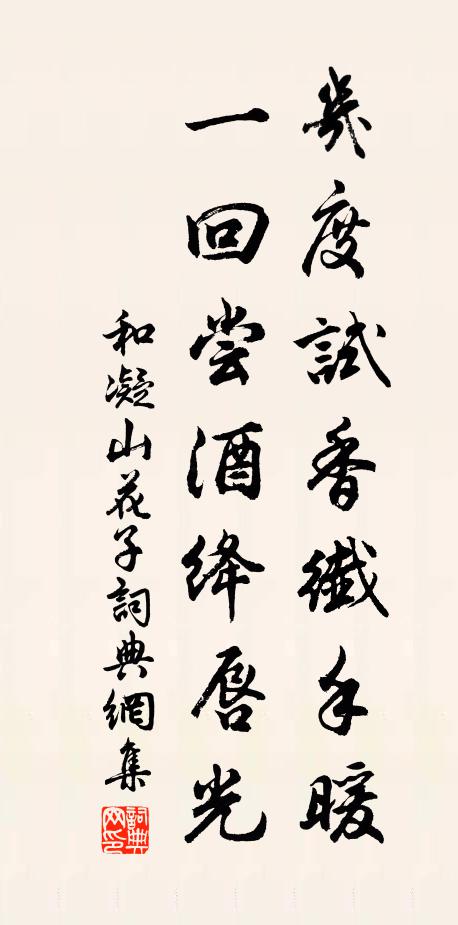 幾度試香纖手暖
一回尝酒绛唇光
和凝山花子詞典網集
詞典网印